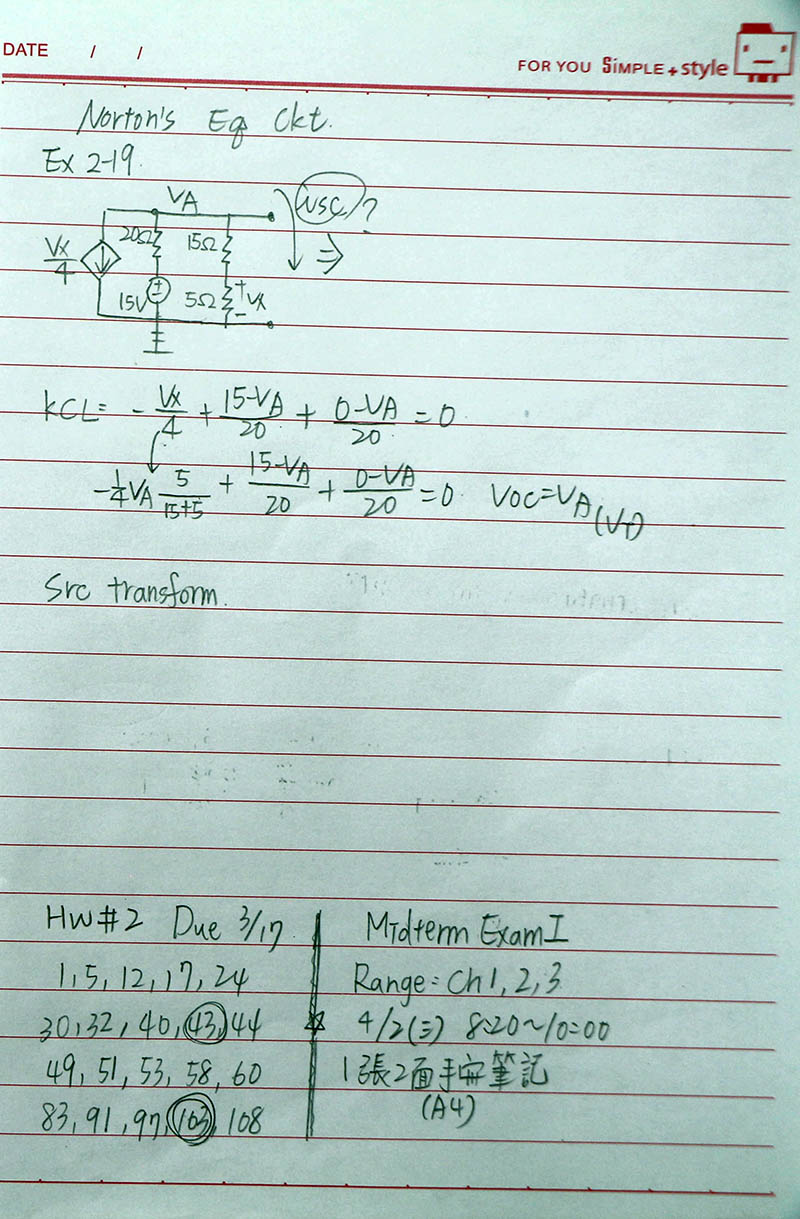 DATE / /
FOR YOU SiMPLE+style
Norton's Eq Ckt.
Ex 2-19.
VA
isc?
20Ω 15Ω
Vx/4
⇒
15V 5Ω + Vx -
KCL= - Vx/4 + 15-VA/20 + 0-VA/20 = 0
-1/4 VA 5/15+5 + 15-VA/20 + 0-VA/20 = 0. VOC=VA (VT)
Src transform.
HW#2 Due 3/17
1, 5, 12, 17, 24
30, 32, 40, 43, 44
49, 51, 53, 58, 60
83, 91, 97, 103, 108
Midterm Exam I
Range: Ch 1, 2, 3
☆ 4/2(三) 8:20~10:00
1張2面手寫筆記
(A4)